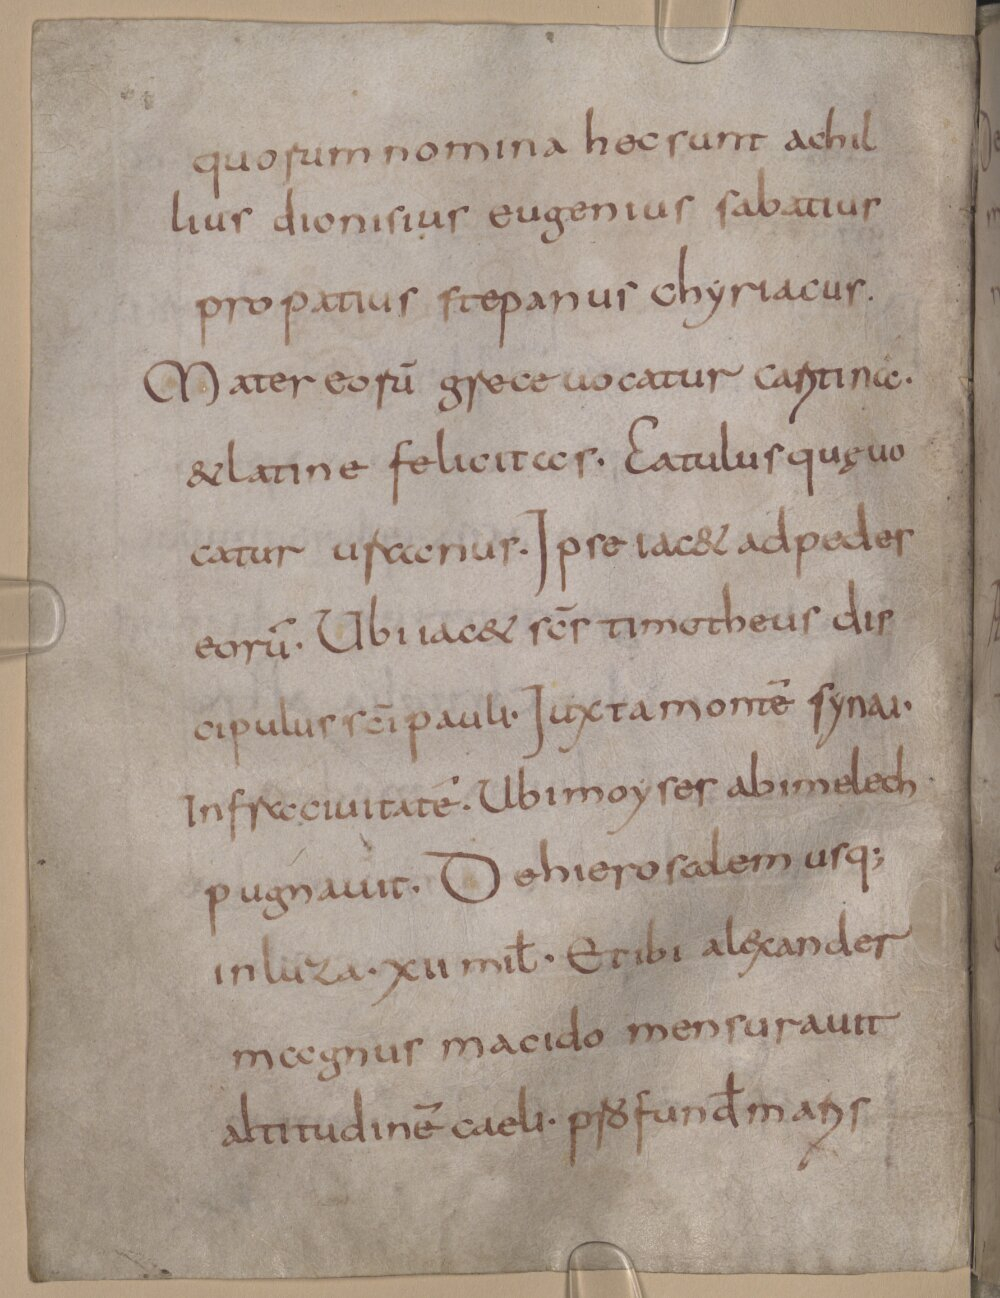 quorum nomina hec sunt achil
lius dionisius eugenius sabatius
propatius stepanus chyriacus.
Mater eorū grece uocatur cartina.
& latine felicitas. Catulus quę uo
catur uracrius. Ipse iac& ad pedes
eorū. Ubi iac& scs̄ timotheus dis
cipulus scī pauli. Iuxta montē synai.
In fra ciuitatē. Ubi moyses abimelech
pugnauit. De hierosalem usq;
in luza. xii mił. Et ibi alexander
magnus macido mensurauit
altitudinē caeli. profund maris